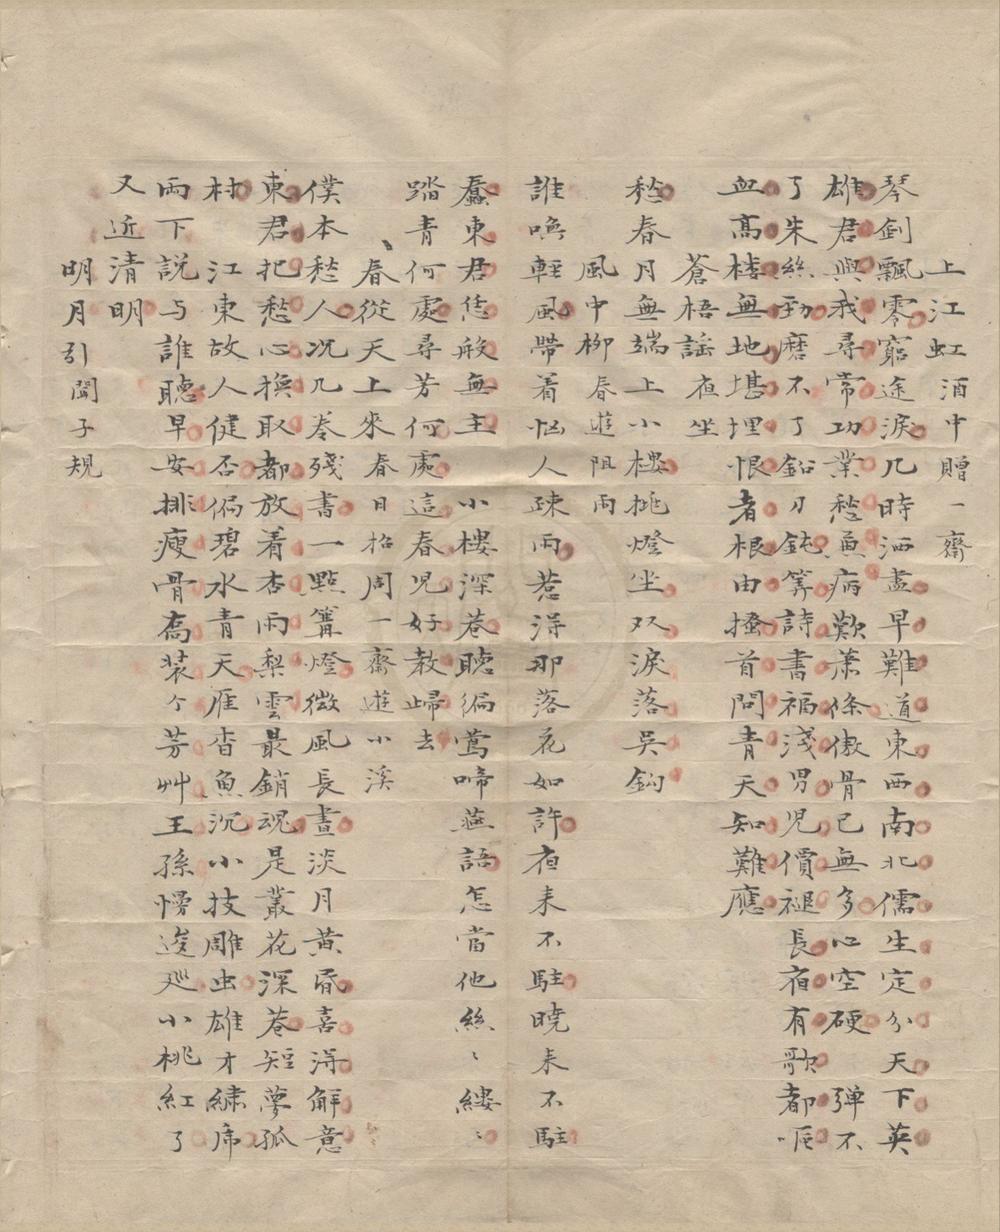 上江虹 酒中贈一齋
琴劍飄零窮途淚几時洒盡早難道東西南北儒生定分天下英
雄君與我尋常功業愁兼病歎蕭條傲骨已無多心空硬 弹不
了朱絲勁磨不了鉛刀鈍筭詩書福淺男児價褪長宿有歌都咽
血高楼無地堪埋恨者根由搔首問青天知難應
蒼梧謠 夜坐
愁春月無端上小樓挑燈坐双淚落吳鈎
風中柳 春遊阻雨
誰喚輕風帶着恼人疎雨惹淂那落花如許夜来不駐暁来不駐
蠢東君恁般無主 小楼深巷聽徧鶯啼燕語怎當他絲〻縷〻
踏青何處尋芳何處這春児好教歸去
春從天上來 春日招周一齋遊小溪
僕本愁人况几卷殘書一點篝燈微風長晝淡月黄昏喜淂解意
東君把愁心換取都放着杏雨梨雲最銷魂是叢花深巷短夢孤
村 江東故人健否徧碧水青天雁杳魚沉小技雕虫雄才繡虎
兩下説与誰聽早安排瘦骨喬装个芳艸王孫慢逡廵小桃紅了
又近清明
明月引 聞子規